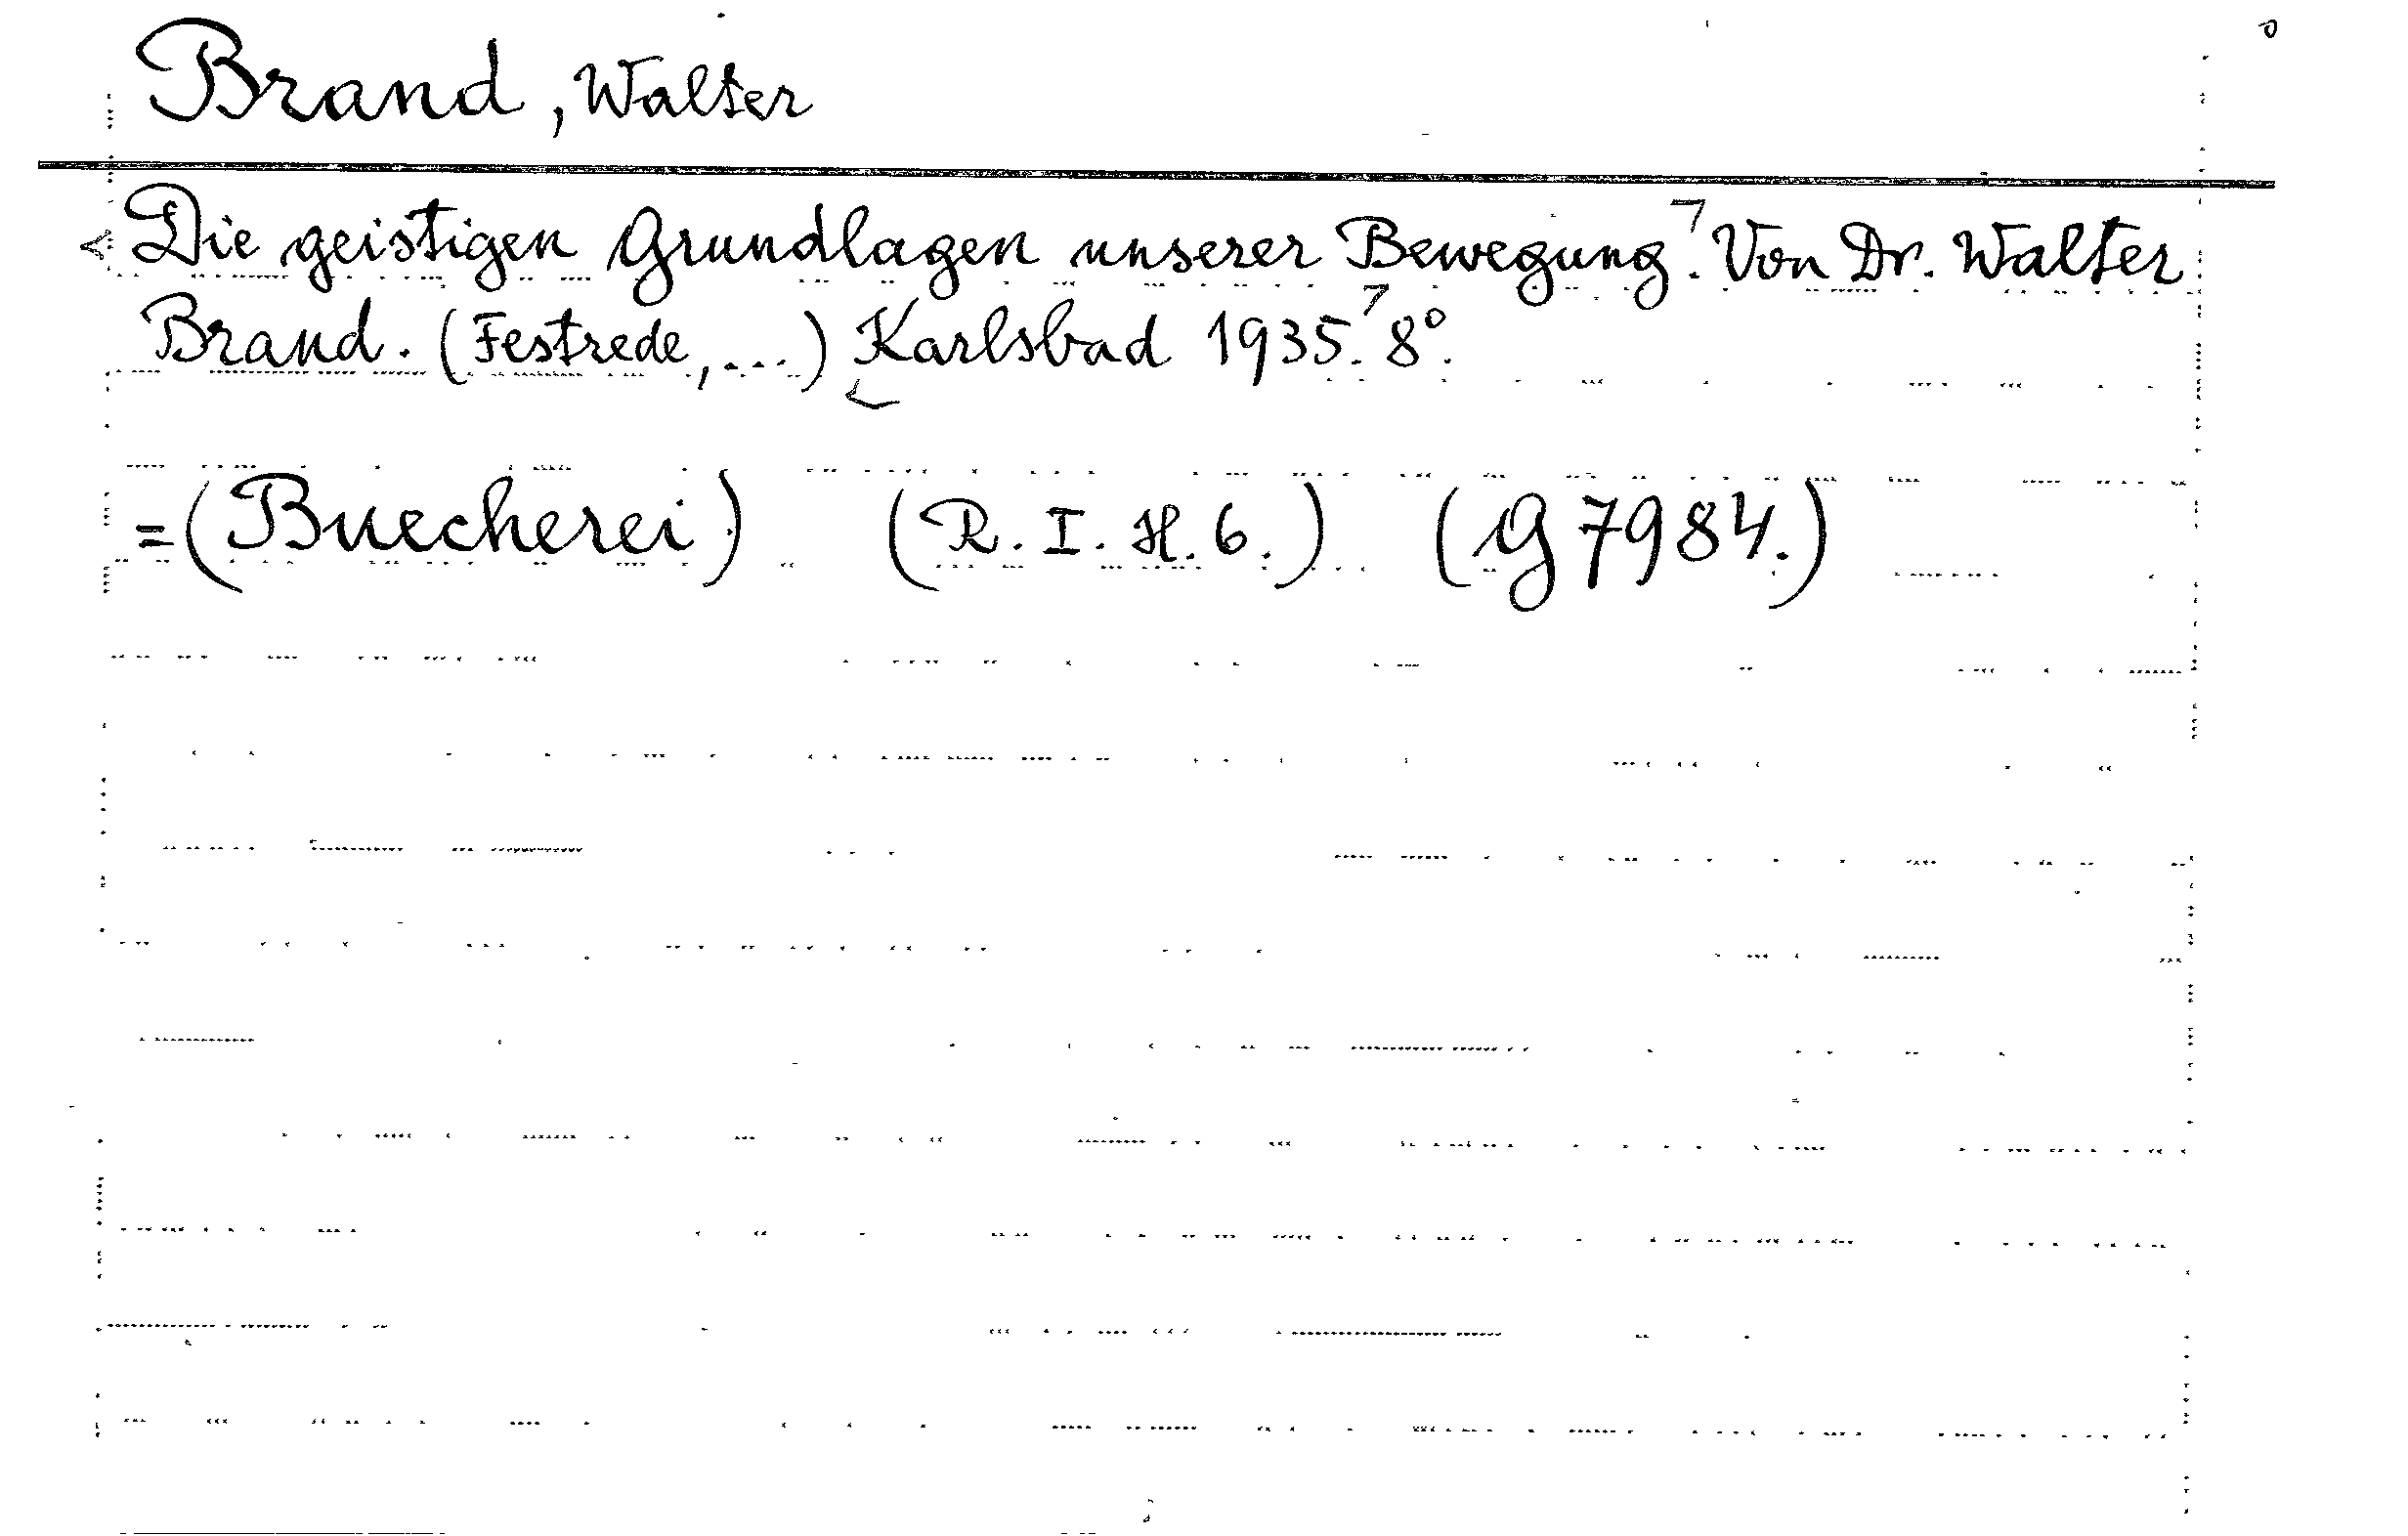 Brand, Walter
Die geistigen Grundlagen unserer Bewegung. Von Dr. Walter
Brand. (Festrede, ...) Karlsbad 1935. 8°.
=(Buecherei) (R. I. H. 6.) (G 7984.)